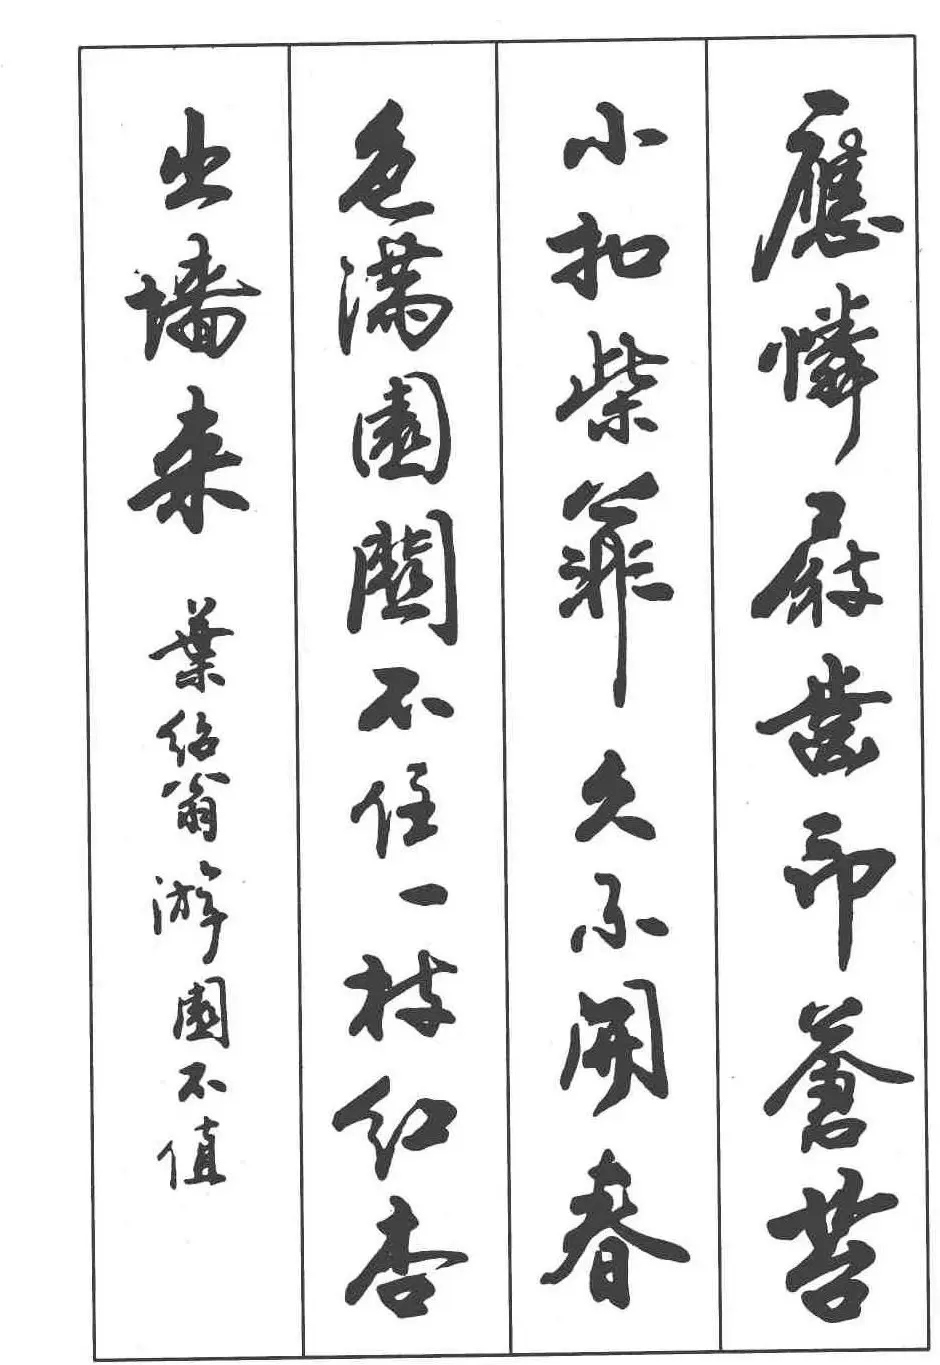 應憐屐齒印蒼苔
小扣柴菲久不開春
色满園關不住一枝红杏
出墙来 葉绍翁游園不值